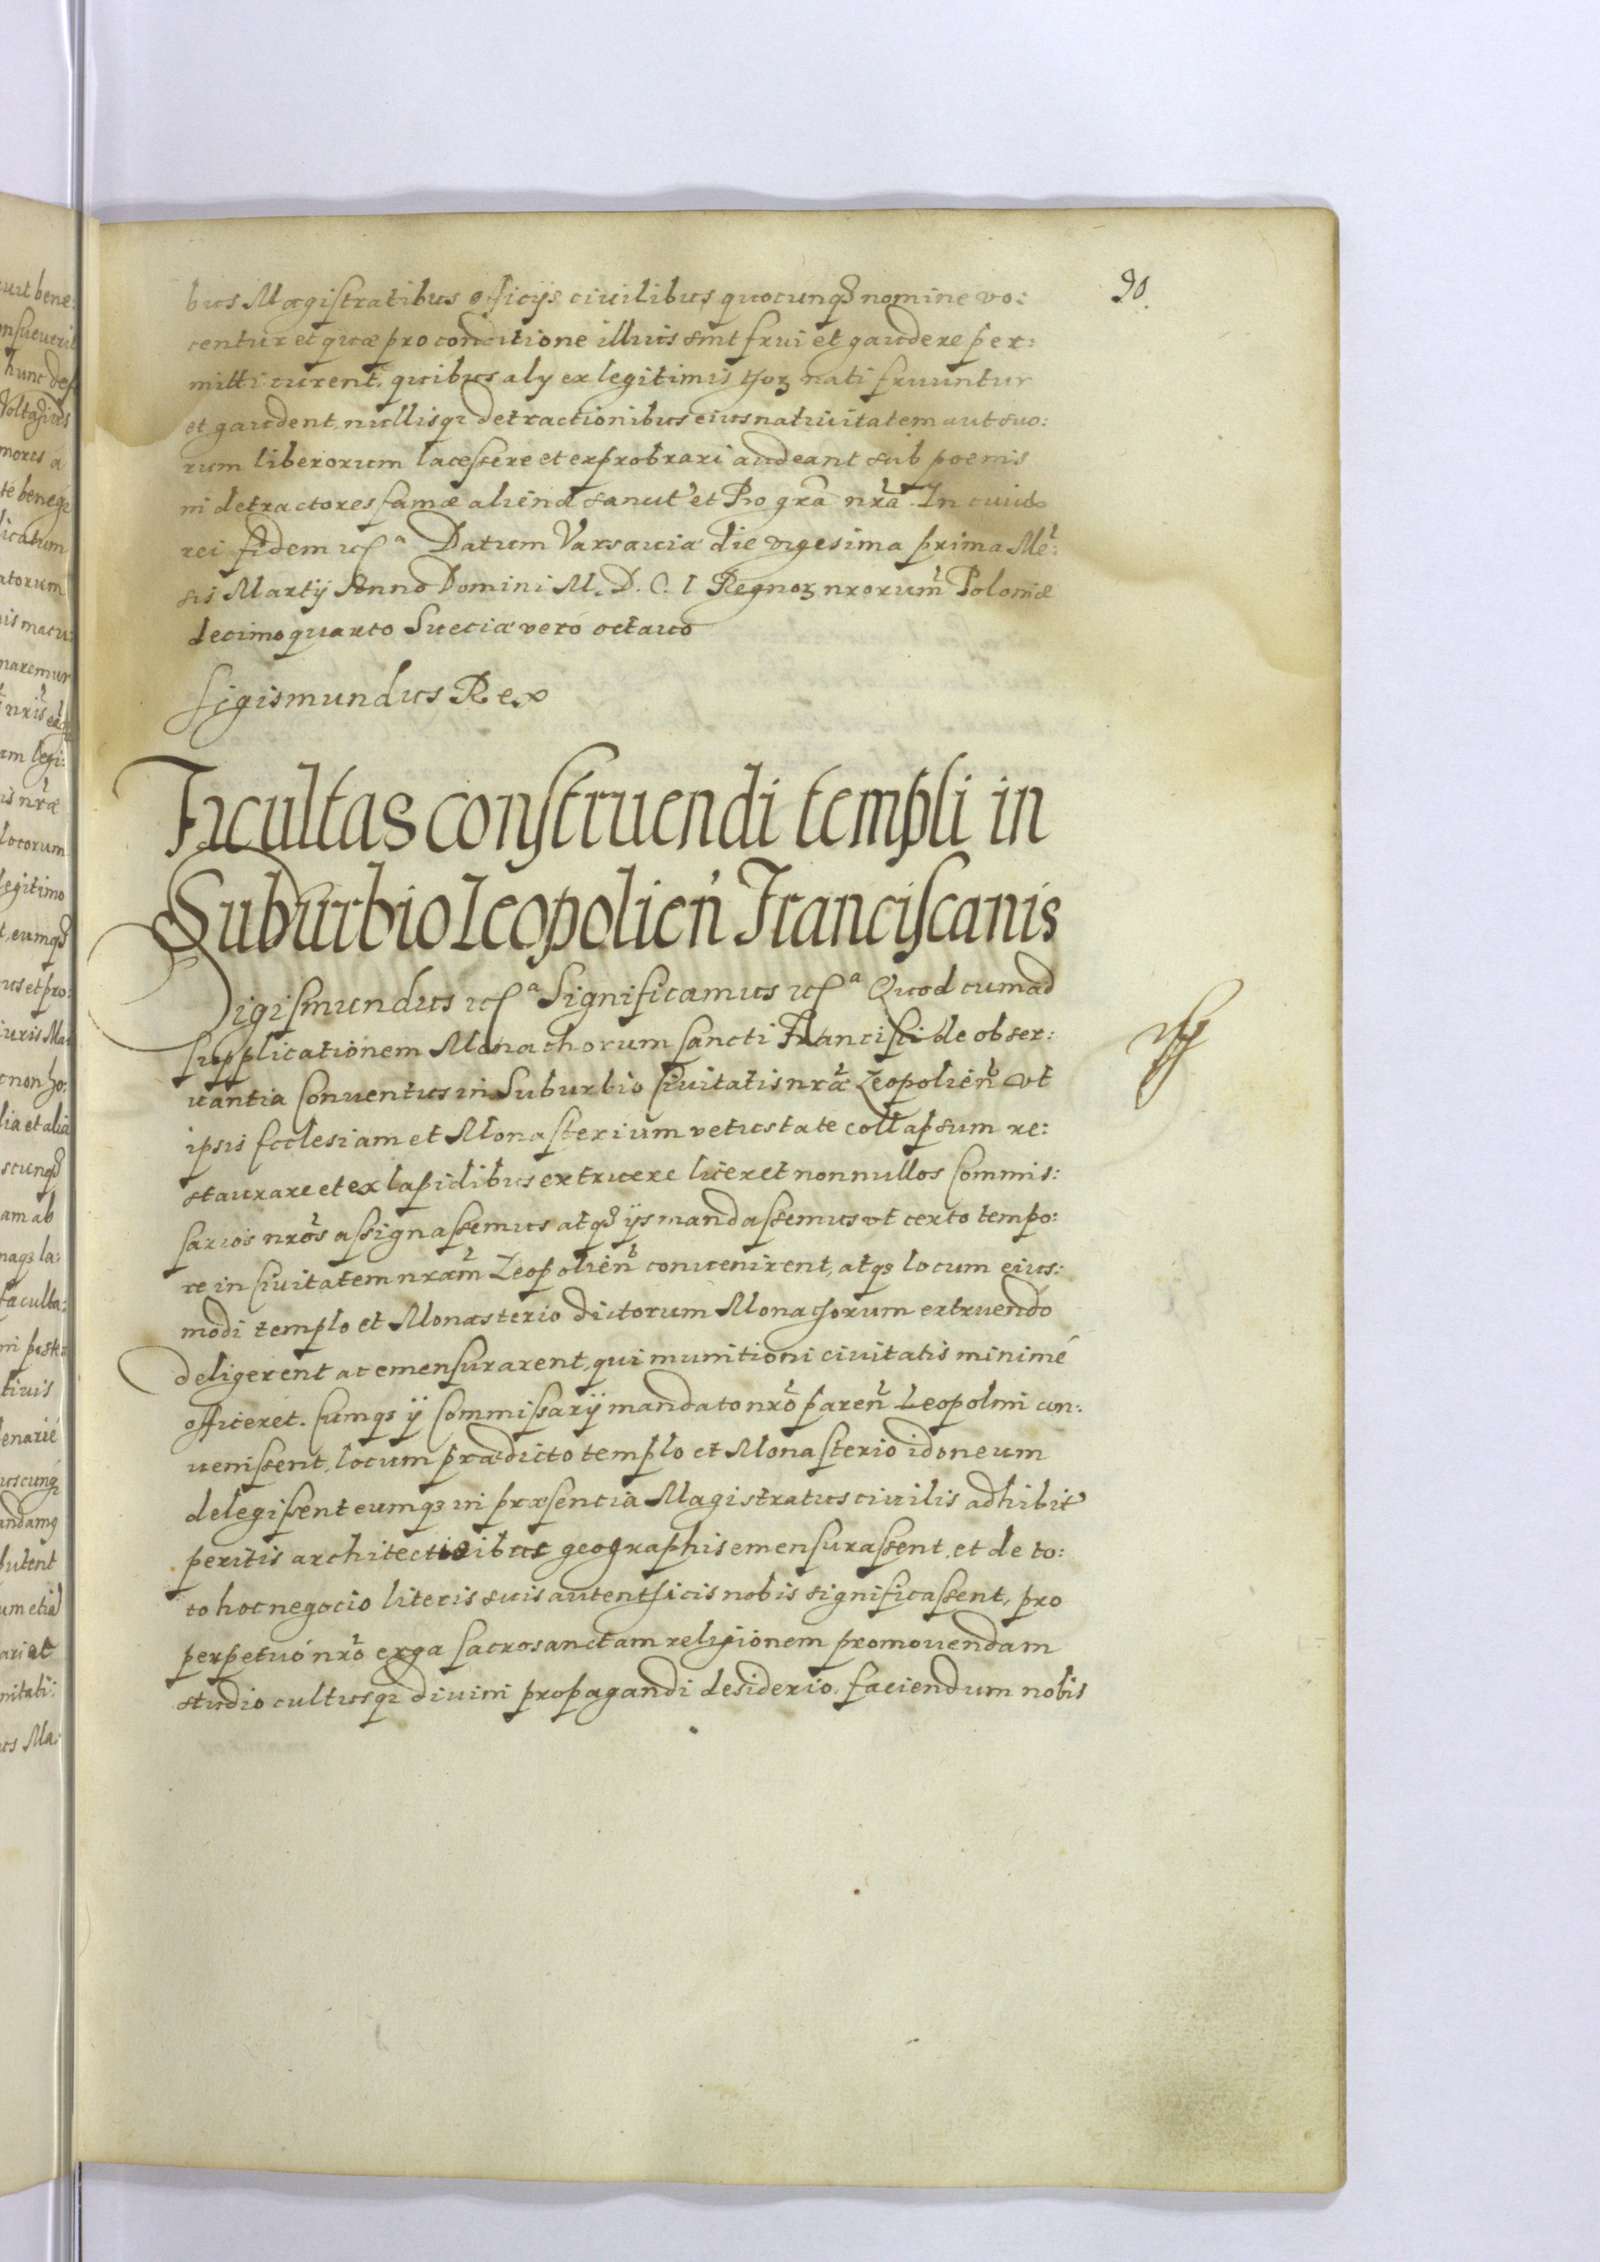 90.
bus Magistratibus officijs ciuilibus quocunq₃ nomine vo:
centur et quæ pro conditione illius sint frui et gaudere per:
mitti curent, quibus alij ex legitimis thoꝝ nati fruuntur
et gaudent, nullisq₃ detractionibus eius natiuitatem aut suo:
rum liberorum lacessere et exprobrari audeant sub poenis
in detractores famæ alienæ sancit' et Pro gr̃a nr̃a. In cuius
rei fidem etc.ª Datum Varsauiæ die vigesima prima Me˜:
sis Martij Anno Domini M. D. C. I Regnoꝝ nrorum˜ Poloniæ
decimo quarto Sueciæ veró octauo
Sigismundus Rex
Facultas construendi templi in
Suburbio Leopolien̄ Franciscanis
Sigismundus etc.ª Significamus etc.ª Quod cum ad
supplicationem Monachorum sancti Francisci de obser:
uantia Conuentus in Suburbio Ciuitatis nr̃æ Leopolien̄ vt
ipsis Ecclesiam et Monasterium vetustate collapsum re:
staurare et ex lapidibus extruere liceret nonnullos Commis:
sarios nr̃os assignassemus atq₃ ijs mandassemus vt certo tempo:
re in Ciuitatem nram̃ Leopolien̄ conuenirent, atq₃ locum eius:
modi templo et Monasterio dictorum Monachorum extruendo
deligerent ac emensurarent, qui munitioni ciuitatis minimé
officeret. Cumq₃ ij Commissarij mandato nr̃o paren̄ Leopolim con:
uenissent, locum prædicto templo et Monasterio idoneum
delegissent eumq₃ in præsentia Magistratus ciuilis adhibit'
peritis architectoribus geographis emensurassent, et de to:
to hoc negocio literis suis autenthicis nobis significassent, pro
perpetuó nr̃o erga sacrosanctam religionem promouendam
studio cultusq₃ diuini propagandi desiderio, faciendum nobis